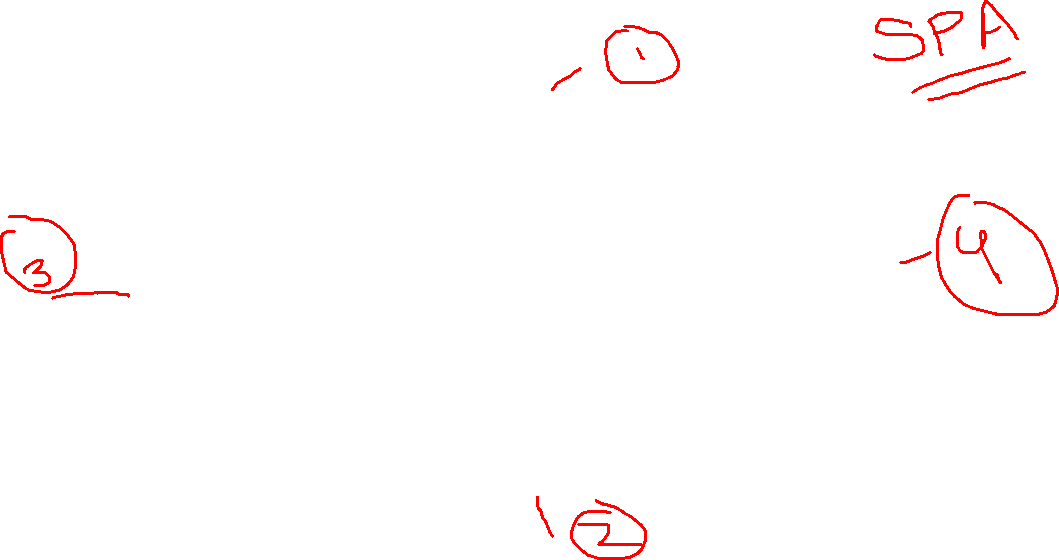 1
SPA
3
4
2